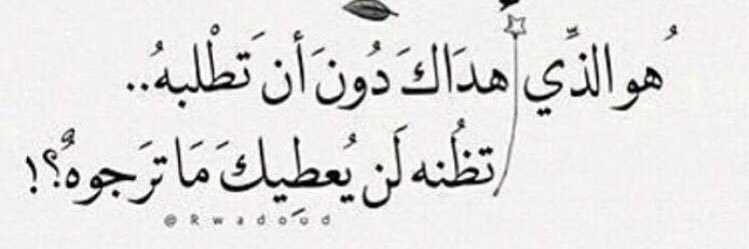 هُو الذِّي هدَاكَ دُونَ أن تَطْلبهُ..
تظُنه لَن يُعطِيكَ مَا ترَجوهُ؟!
@Rwadoud